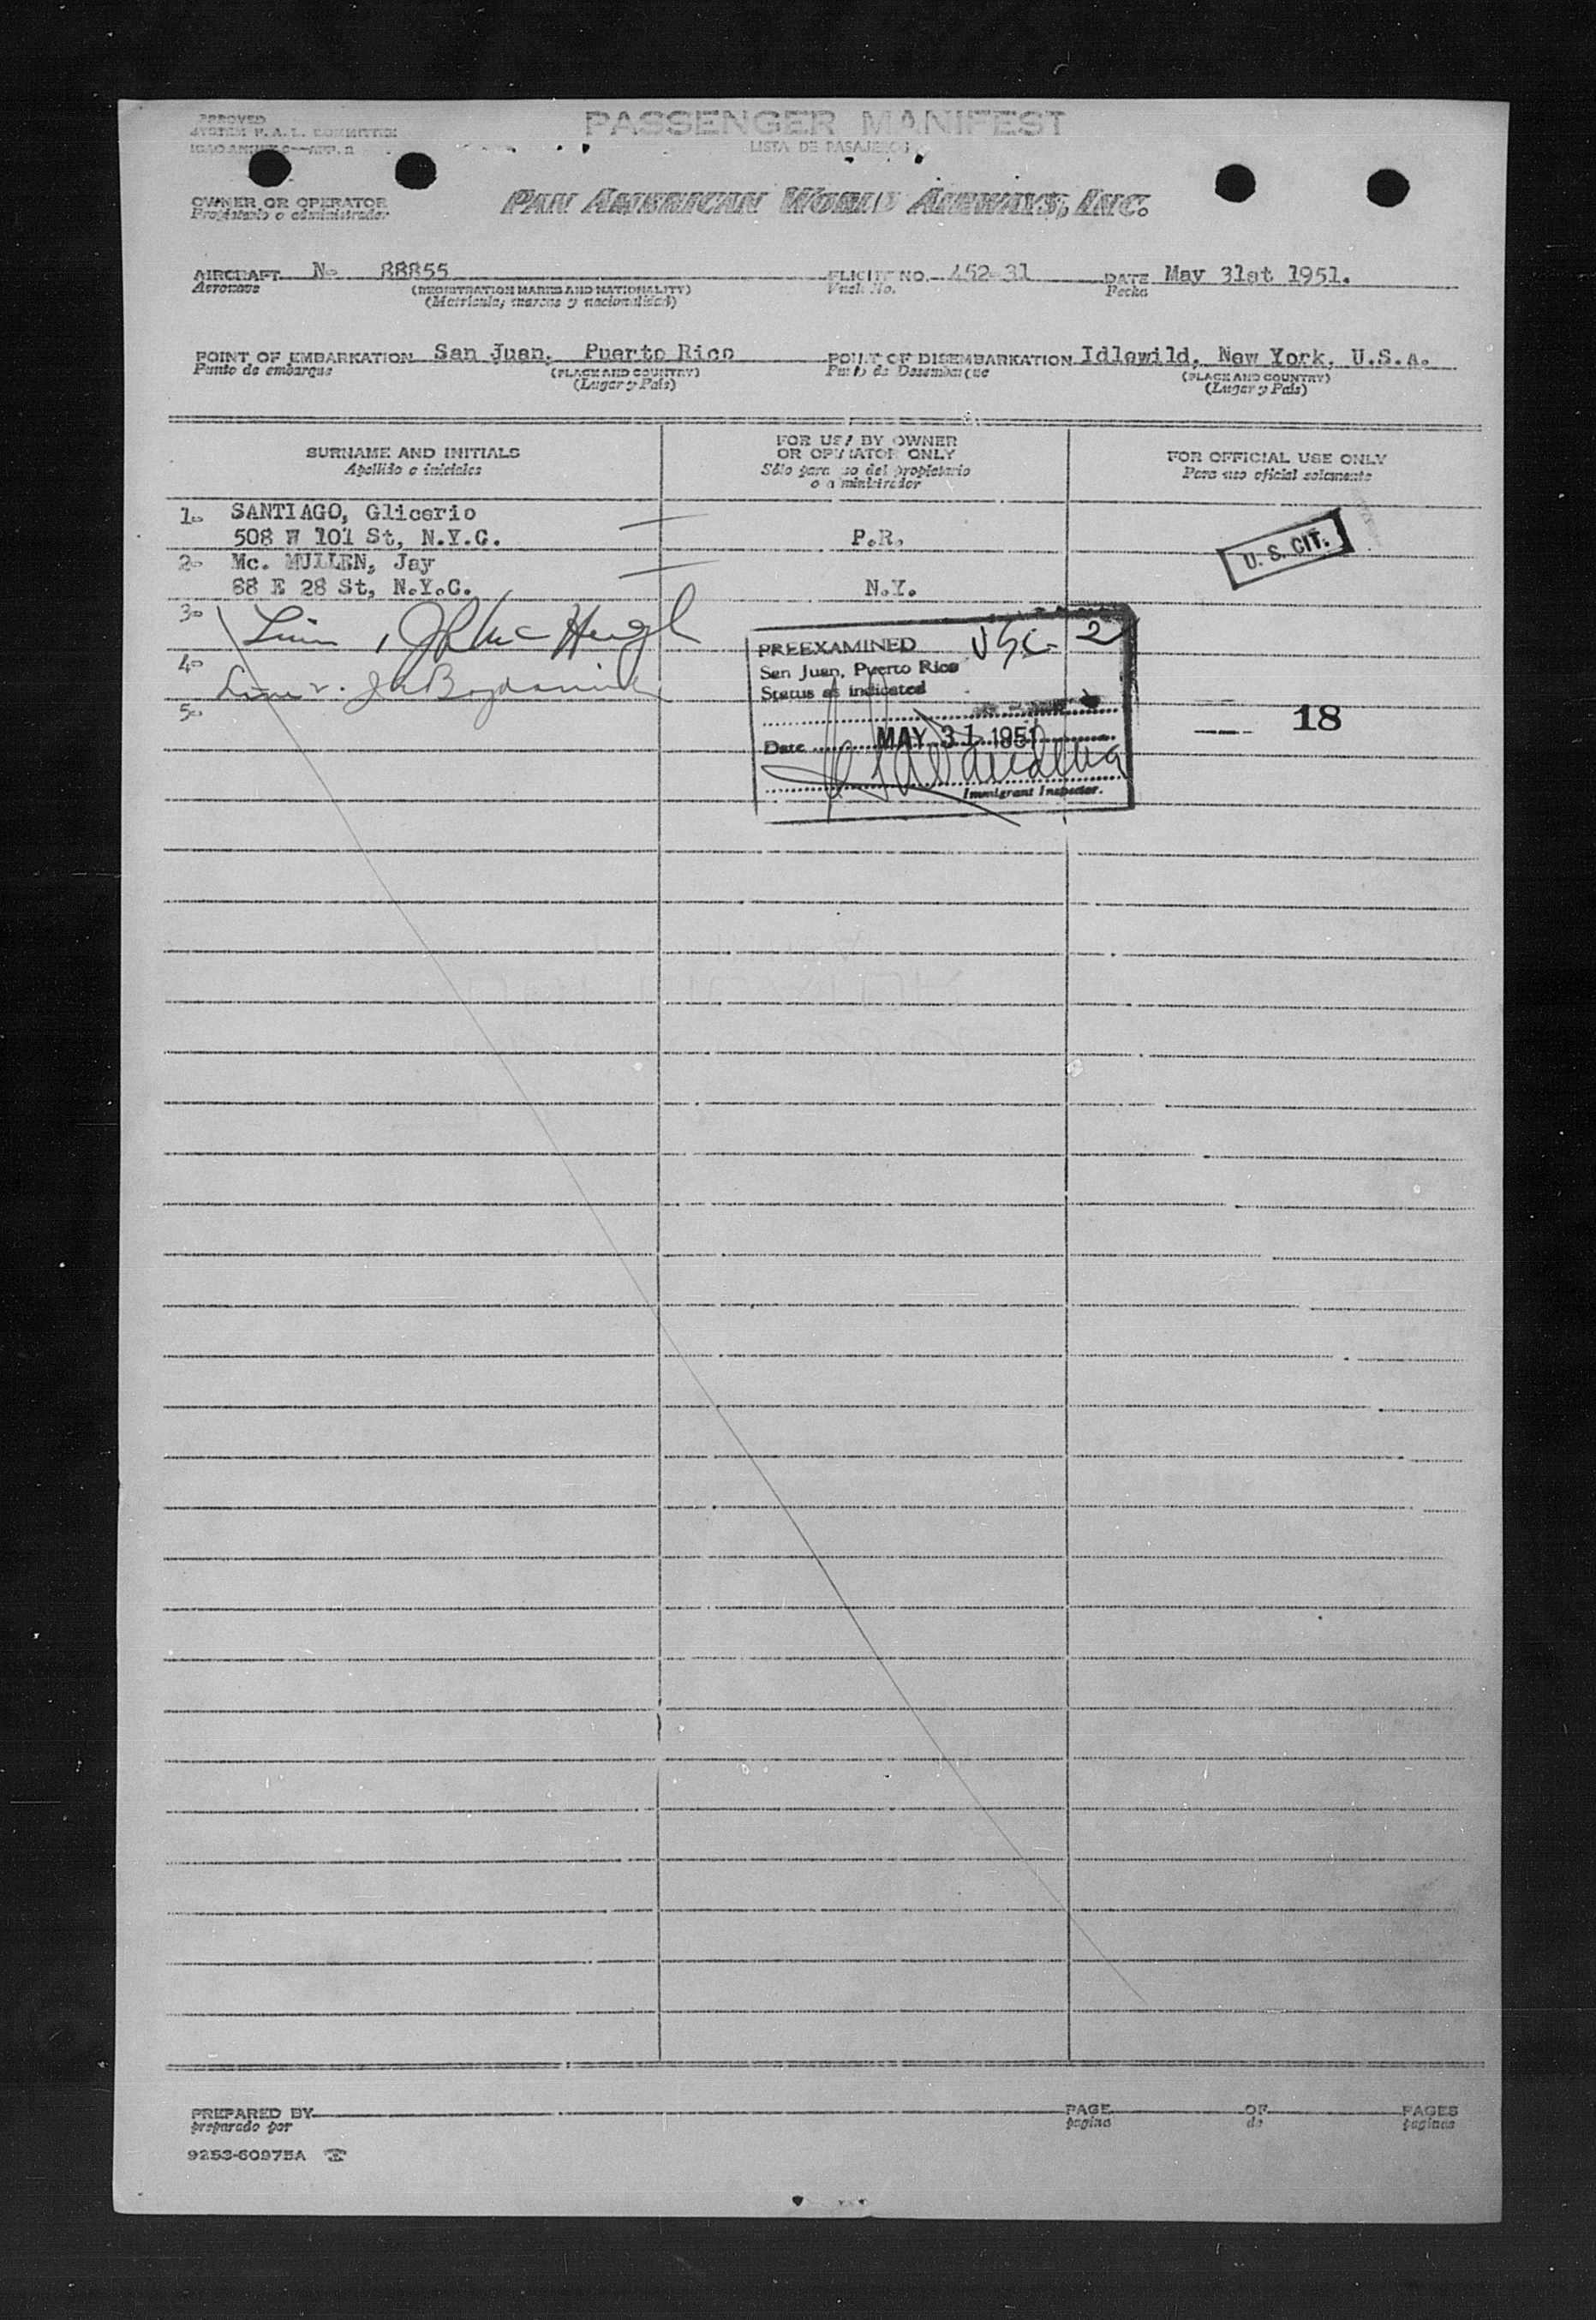 PASSENGER MANIFEST
LISTA DE PASAJEROS
OWNER OR OPERATOR
Propietario o administrador
PAN AMERICAN WORLD AIRWAYS, INC.
AIRCRAFT N- 88855 FLIGHT NO. 452-31 DATE May 31st 1951.
Aeronave (REGISTRATION MARKS AND NATIONALITY) Vuelo No. Fecha
(Matricula; marcas y nacionalidad)
POINT OF EMBARKATION San Juan, Puerto Rico POINT OF DISEMBARKATION Idlewild, New York, U.S.A.
Punto de embarque (PLACE AND COUNTRY) Punto de Desembarque (PLACE AND COUNTRY)
(Lugar y País) (Lugar y País)
SURNAME AND INITIALS FOR USE BY OWNER OR OPERATOR ONLY FOR OFFICIAL USE ONLY
Apellido e iniciales Sólo para uso del propietario o administrador Para uso oficial solamente
1- SANTIAGO, Glicerio
508 W 101 St, N.Y.C. P.R.
U. S. CIT.
2- Mc. MULLEN, Jay
68 E 28 St, N.Y.C. N.Y.
3-
4-
5-
PREEXAMINED USC- 2
San Juan, Puerto Rico
Status as indicated
Date MAY 31 1951
Immigrant Inspector.
18
PREPARED BY PAGE OF PAGES
preparado por pagina de paginas
9253-60975A